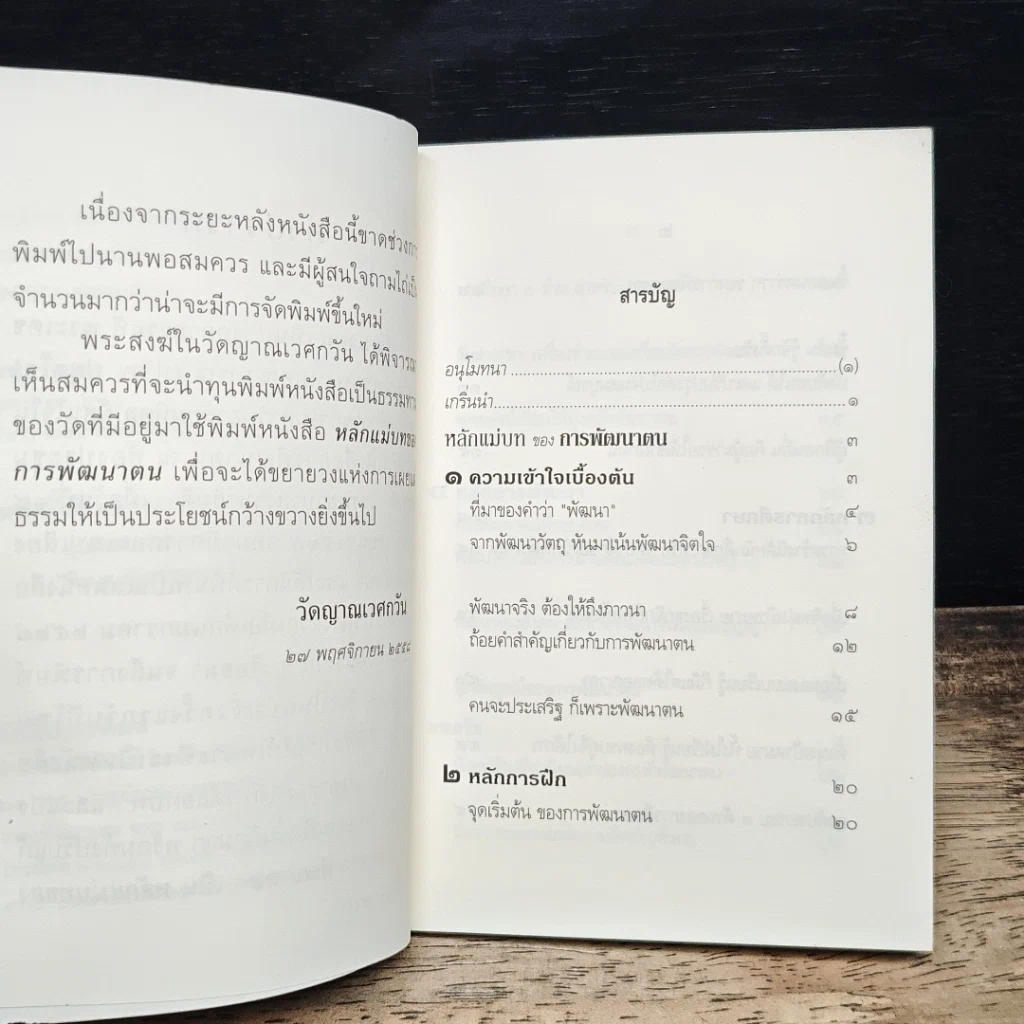 เนื่องจากระยะหลังหนังสือนี้ขาดช่วง
พิมพ์ไปนานพอสมควร และมีผู้สนใจถามไถ่
จำนวนมากว่าน่าจะมีการจัดพิมพ์ขึ้นใหม่
พระสงฆ์ในวัดญาณเวศกวัน ได้พิจารณ
เห็นสมควรที่จะนำทุนพิมพ์หนังสือเป็นธรรมทา
ของวัดที่มีอยู่มาใช้พิมพ์หนังสือ หลักแม่บทขอ
การพัฒนาตน เพื่อจะได้ขยายวงแห่งการเผยแ
ธรรมให้เป็นประโยชน์กว้างขวางยิ่งขึ้นไป
วัดญาณเวศกวัน
๒๗ พฤศจิกายน ๒๕๕๘
สารบัญ
อนุโมทนา ........................................................(๑)
เกริ่นนำ............................................................๑
หลักแม่บท ของ การพัฒนาตน ๓
๑ ความเข้าใจเบื้องต้น ๓
ที่มาของคำว่า "พัฒนา" ๔
จากพัฒนาวัตถุ หันมาเน้นพัฒนาจิตใจ ๖
พัฒนาจริง ต้องให้ถึงภาวนา ๘
ถ้อยคำสำคัญเกี่ยวกับการพัฒนาตน ๑๒
คนจะประเสริฐ ก็เพราะพัฒนาตน ๑๕
๒ หลักการฝึก ๒๐
จุดเริ่มต้น ของการพัฒนาตน ๒๐